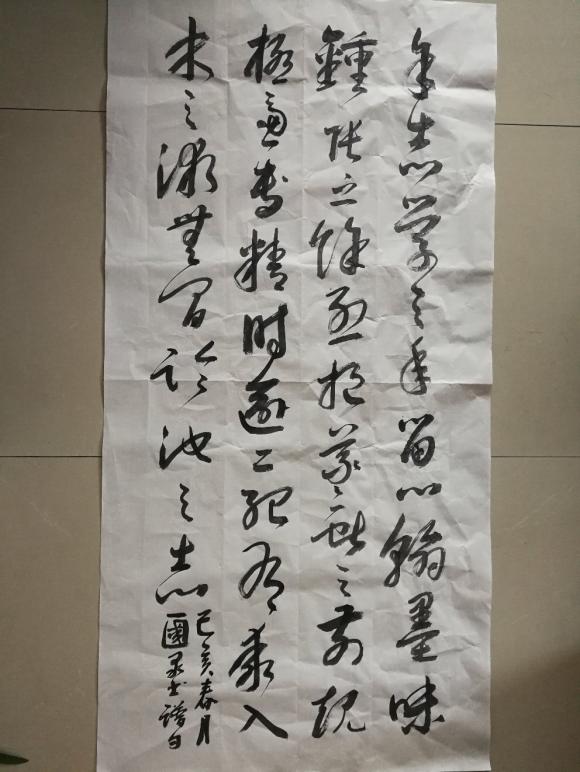 余志學之年留心翰墨味
鍾張之餘烈挹羲獻之前規
極慮專精時逾二紀有乖入
木之術無間臨池之志
己亥春月
國 书譜